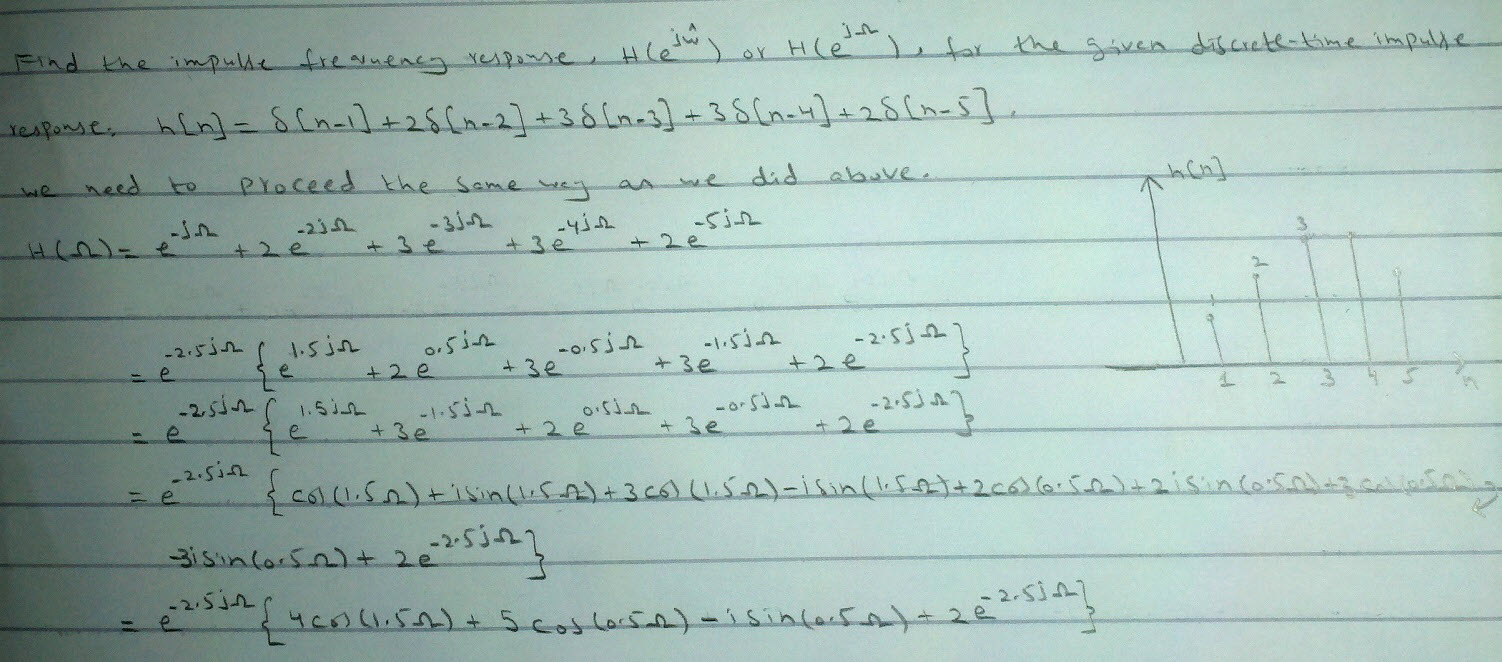 Find the impulse frequency response, H(e^jŵ) or H(e^jΩ), for the given discrete-time impulse
response. h[n] = δ[n-1] + 2δ[n-2] + 3δ[n-3] + 3δ[n-4] + 2δ[n-5].
we need to proceed the same way as we did above.
h[n]
H(Ω) = e^-jΩ + 2e^-2jΩ + 3e^-3jΩ + 3e^-4jΩ + 2e^-5jΩ
3
2
1
= e^-2.5jΩ { e^1.5jΩ + 2e^0.5jΩ + 3e^-0.5jΩ + 3e^-1.5jΩ + 2e^-2.5jΩ }
1 2 3 4 5 n
= e^-2.5jΩ { e^1.5jΩ + 3e^-1.5jΩ + 2e^0.5jΩ + 3e^-0.5jΩ + 2e^-2.5jΩ }
= e^-2.5jΩ { cos(1.5Ω) + isin(1.5Ω) + 3cos(1.5Ω) - isin(1.5Ω) + 2cos(0.5Ω) + 2isin(0.5Ω) + 3cos(0.5Ω)
-3isin(0.5Ω) + 2e^-2.5jΩ }
= e^-2.5jΩ { 4cos(1.5Ω) + 5cos(0.5Ω) - isin(0.5Ω) + 2e^-2.5jΩ }